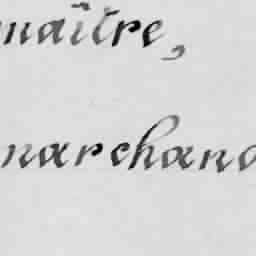 maître,
marchand